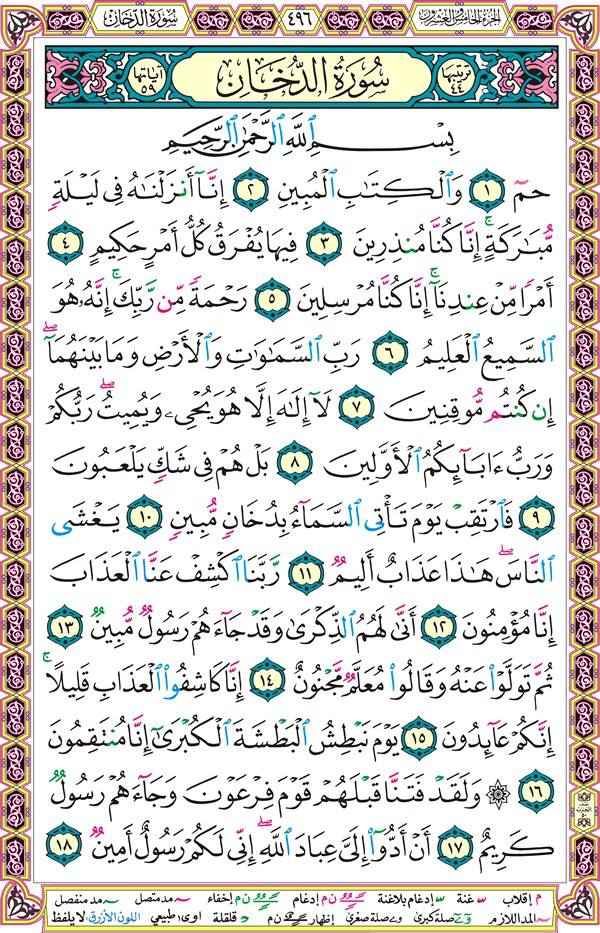 الجزء الخامس والعشرون
٤٩٦
سورة الدخان
ترتيبها ٤٤
سُورَةُ الدُّخَانِ
آياتها ٥٩
بِسْمِ ٱللَّهِ ٱلرَّحْمَٰنِ ٱلرَّحِيمِ
حمٓ ١ وَٱلْكِتَٰبِ ٱلْمُبِينِ ٢ إِنَّآ أَنزَلْنَٰهُ فِى لَيْلَةٍ
مُّبَٰرَكَةٍ ۚ إِنَّا كُنَّا مُنذِرِينَ ٣ فِيهَا يُفْرَقُ كُلُّ أَمْرٍ حَكِيمٍ ٤
أَمْرًا مِّنْ عِندِنَآ ۚ إِنَّا كُنَّا مُرْسِلِينَ ٥ رَحْمَةً مِّن رَّبِّكَ ۚ إِنَّهُۥ هُوَ
ٱلسَّمِيعُ ٱلْعَلِيمُ ٦ رَبِّ ٱلسَّمَٰوَٰتِ وَٱلْأَرْضِ وَمَا بَيْنَهُمَآ ۖ
إِن كُنتُم مُّوقِنِينَ ٧ لَآ إِلَٰهَ إِلَّا هُوَ يُحْىِۦ وَيُمِيتُ ۖ رَبُّكُمْ
وَرَبُّ ءَابَآئِكُمُ ٱلْأَوَّلِينَ ٨ بَلْ هُمْ فِى شَكٍّ يَلْعَبُونَ
٩ فَٱرْتَقِبْ يَوْمَ تَأْتِى ٱلسَّمَآءُ بِدُخَانٍ مُّبِينٍ ١٠ يَغْشَى
ٱلنَّاسَ ۖ هَٰذَا عَذَابٌ أَلِيمٌ ١١ رَّبَّنَا ٱكْشِفْ عَنَّا ٱلْعَذَابَ
إِنَّا مُؤْمِنُونَ ١٢ أَنَّىٰ لَهُمُ ٱلذِّكْرَىٰ وَقَدْ جَآءَهُمْ رَسُولٌ مُّبِينٌ ١٣
ثُمَّ تَوَلَّوْا۟ عَنْهُ وَقَالُوا۟ مُعَلَّمٌ مَّجْنُونٌ ١٤ إِنَّا كَاشِفُوا۟ ٱلْعَذَابِ قَلِيلًا ۚ
إِنَّكُمْ عَآئِدُونَ ١٥ يَوْمَ نَبْطِشُ ٱلْبَطْشَةَ ٱلْكُبْرَىٰٓ إِنَّا مُنتَقِمُونَ
١٦ ۞ وَلَقَدْ فَتَنَّا قَبْلَهُمْ قَوْمَ فِرْعَوْنَ وَجَآءَهُمْ رَسُولٌ
كَرِيمٌ ١٧ أَنْ أَدُّوٓا۟ إِلَىَّ عِبَادَ ٱللَّهِ ۖ إِنِّى لَكُمْ رَسُولٌ أَمِينٌ ١٨
م إقلاب غنة إدغام بلاغنة ن م إدغام ن م إخفاء مد متصل مد منفصل
المد اللازم صلة كبرى صلة صغرى إظهار ن م قلقلة اوى طبيعي اللون الأزرق لا يلفظ